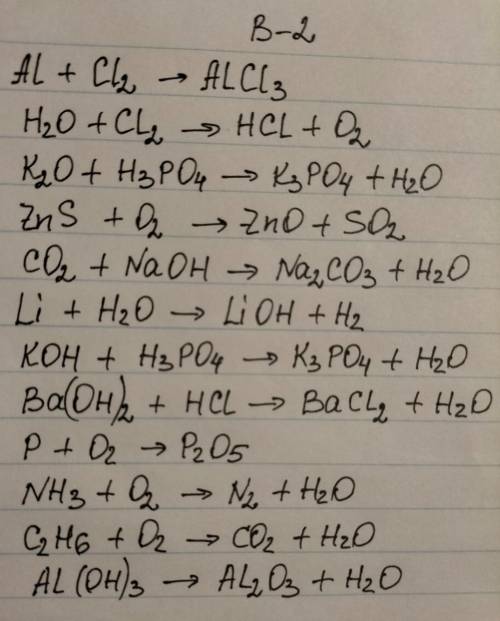 В-2
Al + Cl₂ → AlCl₃
H₂O + Cl₂ → HCl + O₂
K₂O + H₃PO₄ → K₃PO₄ + H₂O
ZnS + O₂ → ZnO + SO₂
CO₂ + NaOH → Na₂CO₃ + H₂O
Li + H₂O → LiOH + H₂
KOH + H₃PO₄ → K₃PO₄ + H₂O
Ba(OH)₂ + HCl → BaCl₂ + H₂O
P + O₂ → P₂O₅
NH₃ + O₂ → N₂ + H₂O
C₂H₆ + O₂ → CO₂ + H₂O
Al(OH)₃ → Al₂O₃ + H₂O